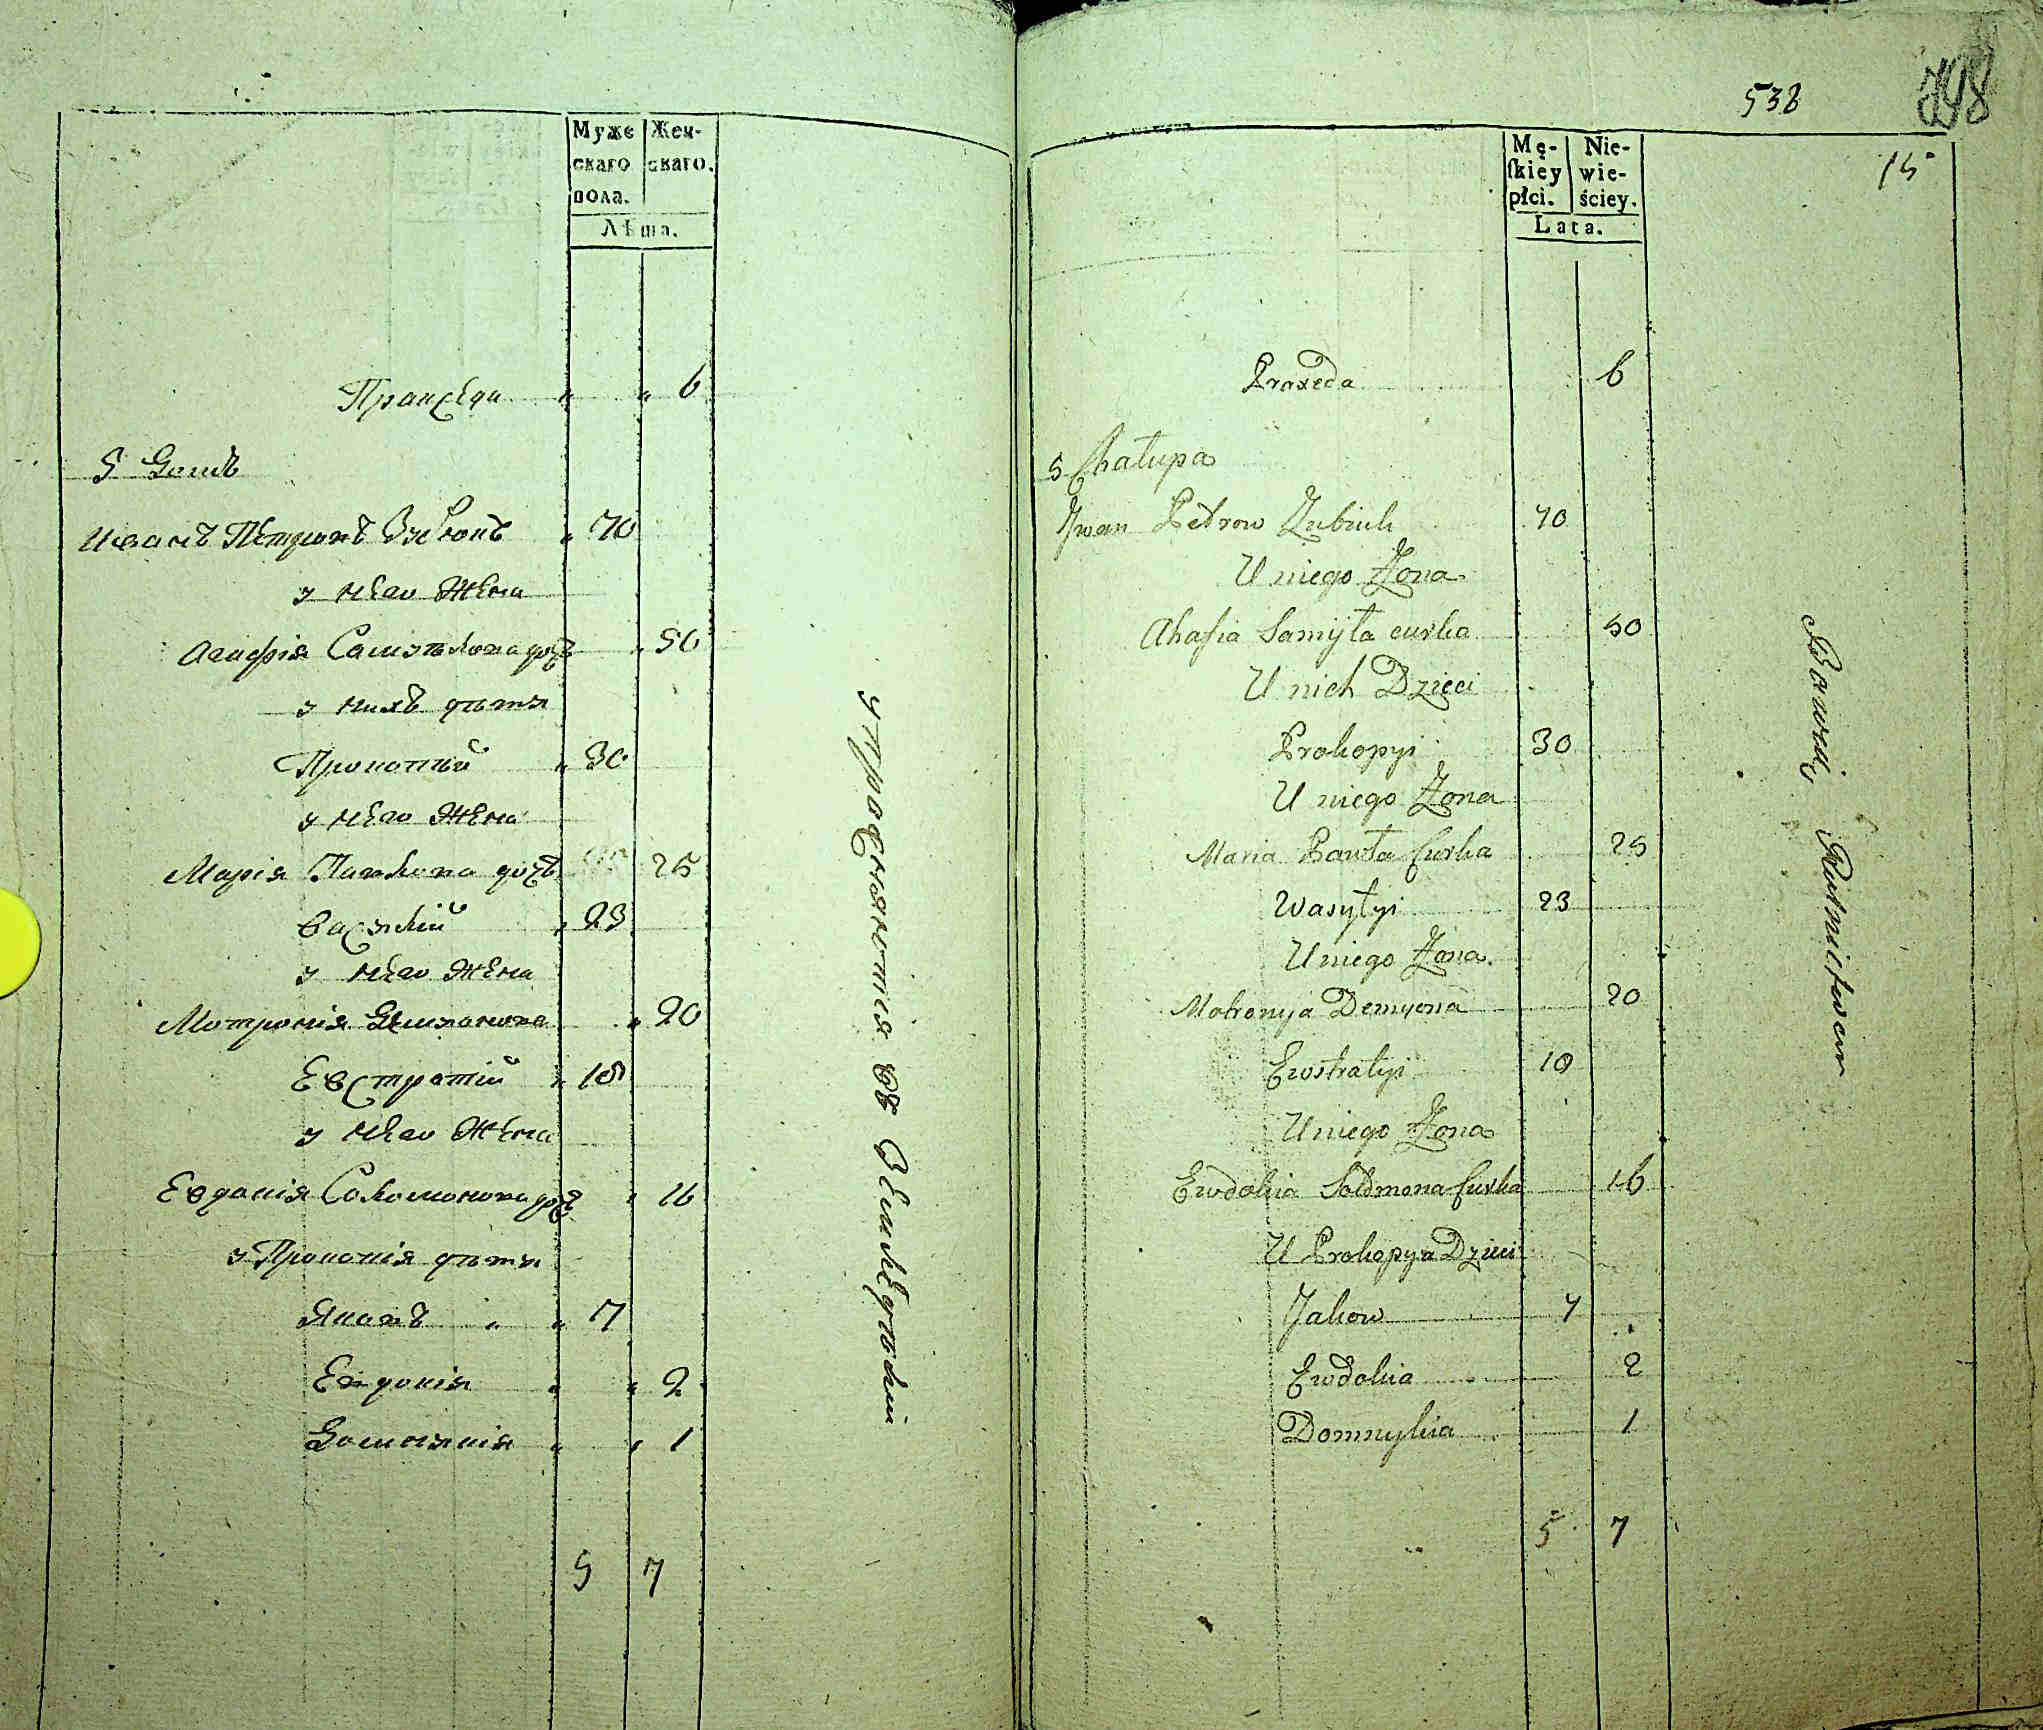 Муже
скаго
пола.
Жен-
скаго.
Лѣта.
Пракседа " " 6
5 Домъ
Иванъ Петровъ Зубюкъ " 70
у него Жена
Агафія Самойлова дочь " 50
у нихъ дѣти
Прокопий " 30
у него Жена
Марія Павлова дочь 25
Василий " 23
у него Жена
Мотронія Демянова " 20
Евстратий " 18
у него Жена
Евдокія Соломонова дочь " 16
у Прокопія дѣти
Яковъ " " 7
Евдокія " " 2
Домникія " " 1
5 7
упражняются въ Земледѣлии
538
748
15
Mę-
skiey
płci.
Nie-
wie-
ściey.
Lata.
Praxeda 6
5 Chałupa
Jwan Petrow Zubiuk 70
U niego Żona
Ahafia Samyła curka 50
U nich Dzieci
Prokopyi 30
U niego Żona
Maria Pawła Curka 25
Wasyłyi 23
U niego Żona
Motronyja Demyona 20
Ewstratyi 18
U niego Żona
Ewdokia Sołomona Curka 16
U Prokopyja Dzieci
Jakow 7
Ewdokia 2
Domnykia 1
5 7
Bawią Rolnictwem